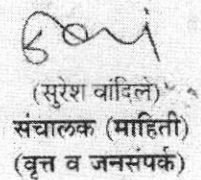 (सुरेश वांदिले)
संचालक (माहिती)
(वृत्त व जनसंपर्क)